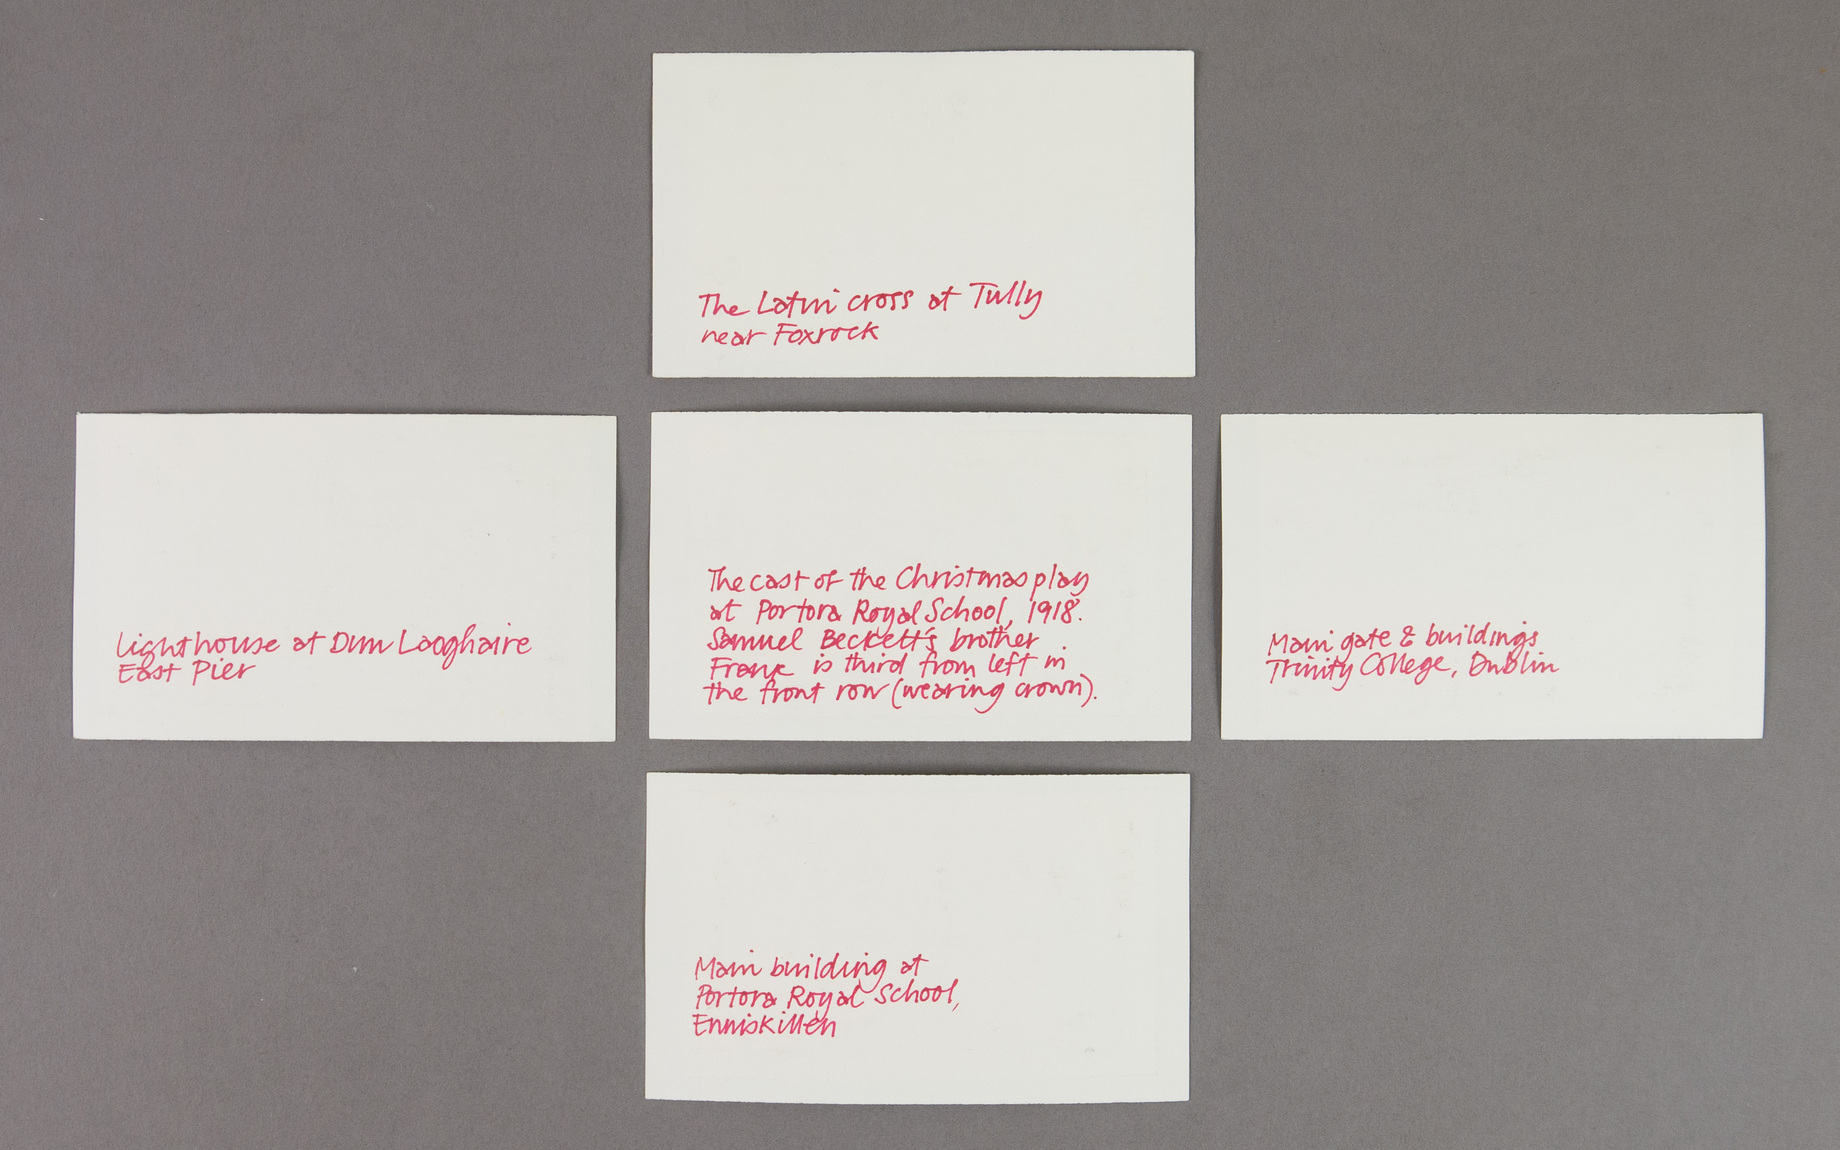 The Latin cross at Tully
near Foxrock
Lighthouse at Dun Laoghaire
East Pier
The cast of the Christmas play
at Portora Royal School, 1918.
Samuel Beckett's brother
Frank is third from left in
the front row (wearing crown).
Main gate & buildings
Trinity College, Dublin
Main building at
Portora Royal School,
Enniskillen